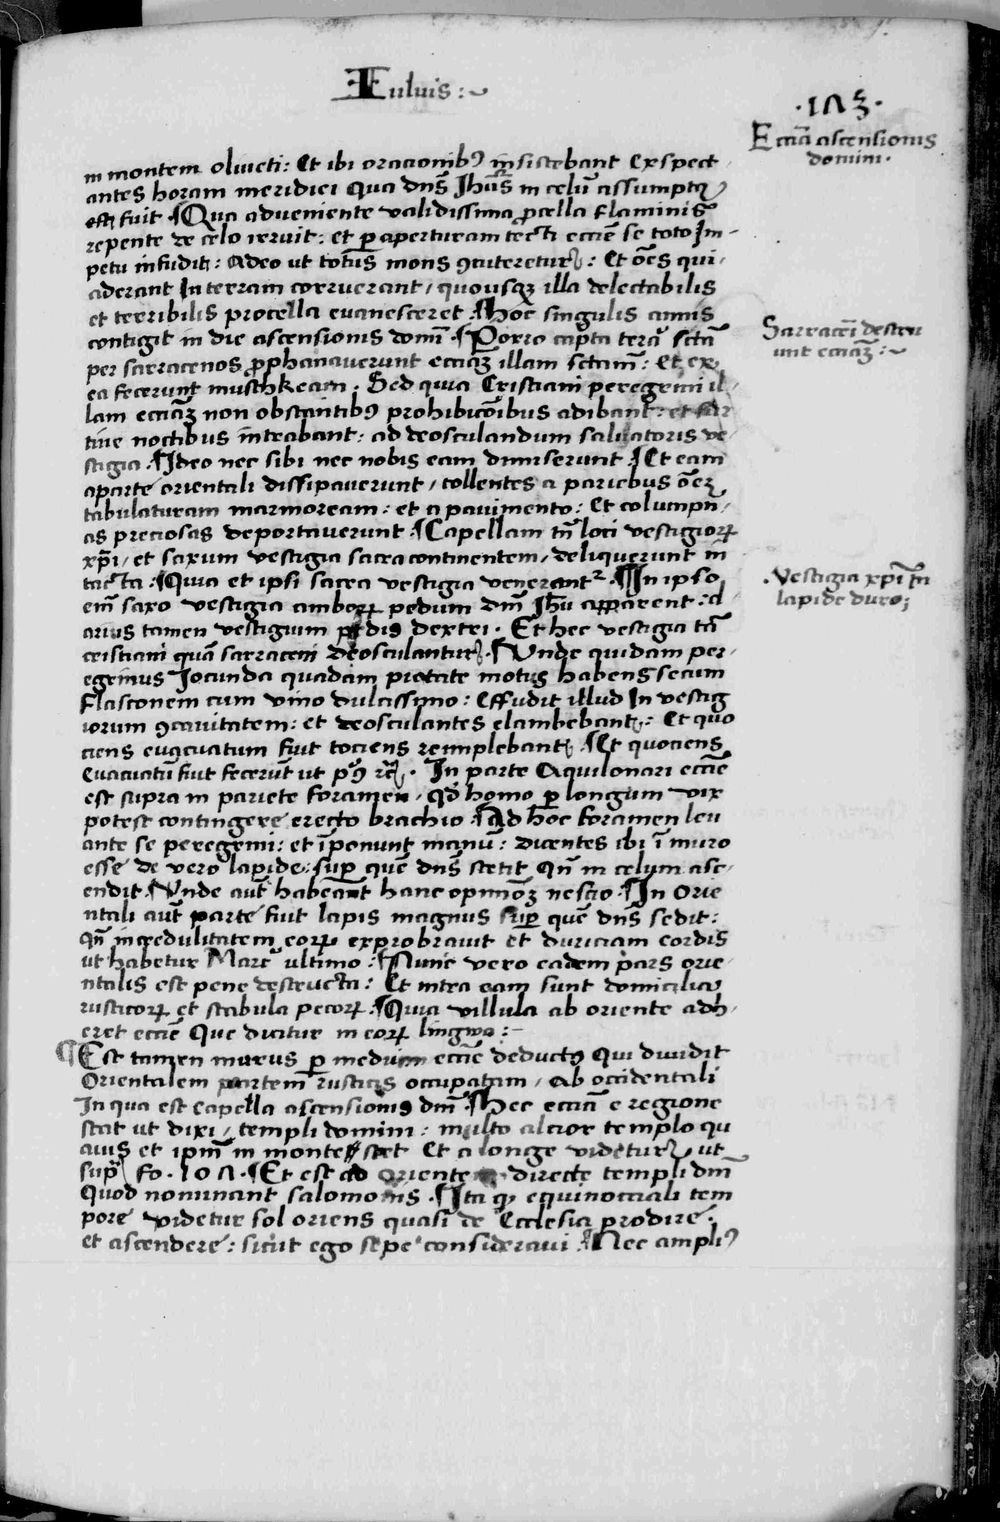 Iulius :~
·173·
Eccīa ascensionis
domini·
in montem oliueti: Et ibi oracionibꝰ insistebant Exspect
antes horam meridiei Qua dn̄s Jhūs in celū assumptꝰ
fuit · ¶Qua adueniente validissima ꝓcella flaminis
repente de celo irruit: et ꝑ aperturam tecti eccīe se toto Im-
petu infudit: Adeo ut totus mons ꝯcuteretur: Et oēs qui
aderant In terram corruerant / quousqꝫ illa delectabilis
et terribilis procella euanesceret ¶Hoc singulis annis
contigit in die ascensionis domī · ¶Porro capta terā sctā
per sarracenos ꝓphanauerunt eccīaꝫ illam sctam̄: Et ex
ea fecerunt muschkeam · Sed quia Cristiani peregrini il
lam eccīaꝫ non obstantibꝰ prohibicōibus adibant: et fur
tiue noctibus intrabant: ad deosculandum saluatoris ve
stigia · ¶Ideo nec sibi nec nobis eam dimiserunt ¶Et eam
aparte orientali dissipauerunt / tollentes a parietibus oēꝫ
tabulaturam marmoream: et a pauimento: Et columpn̄
as preciosas deportauerunt · ¶Capellam tn̄ loci vestigioꝝ
xp̄i / et saxum vestigia sacra continentem / deliquerunt in
tacta: ¶Quia et ipsi sacra vestigia venerant² · ¶In ipso
eīn saxo vestigia amboꝝ pedum dnī Jhū apparent: cl
arius tamen vestigium pedis dextri · Et hec vestigia tā
cristiani quā sarraceni deosculantur · ¶Vnde quidam per
egrinus Jocunda quadam pietate motus habens secum
flasconem cum vino dulcissimo: Effudit illud In vestig
iorum ꝯcauitatem: et deosculantes elambebant: Et quo
ciens euacuatum fuit tociens reimplebant ¶Et quociens
euacuatū fuit fecerūt ut pꝰ rē · In parte Aquilonari eccīe
est supra in pariete foramen / qd̄ homo ꝑ longum vix
potest contingere erecto brachio ¶Ad hoc foramen leu
ante se peregrini: et īponunt manū: dicentes ibi ī muro
esse de vero lapide: sup̱ quē dn̄s stetit qn̄ in celum asc
endit · ¶Vnde aut̄ habeant hanc opinōꝫ nescio · ¶In Orie
ntali aut̄ parte fuit lapis magnus sup̱ quē dn̄s sedit:
qn̄ incredulitatem eoꝝ exprobrauit et duriciam cordis
ut habetur Marc̄ ultimo: ¶Nunc vero eadem pars orie
ntalis est pene destructa: Et intra eam sunt domicilia
rusticoꝝ et stabula pecoꝝ · ¶Quia villula ab oriente adh
eret eccīe Que dicitur in eoꝝ lingwa :-
¶Est tamen murus ꝑ medium eccīe deductꝰ Qui diuidit
Orientalem partem rusticis occupatam / Ab occidentali
In qua est Capella ascensionis dnī · ¶Hec eccīa e regione
stat ut dixi / templi domini: multo alcior templo qu
auis et ipm̄ in monte stet Et a longe videtur ut
sup̱ fo · 101 · ¶Et est ad Orientem directe templi dnī
Quod nominant salomonis · ¶Ita qꝫ equinoctiali tem
pore videtur sol oriens quasi de Ecclesia prodire
et ascendere: sicut ego sepe consideraui ¶Nec ampliꝰ
Sarracēi destru
unt eccīaꝫ :~
·Vestigia xp̄i in
lapide duro;